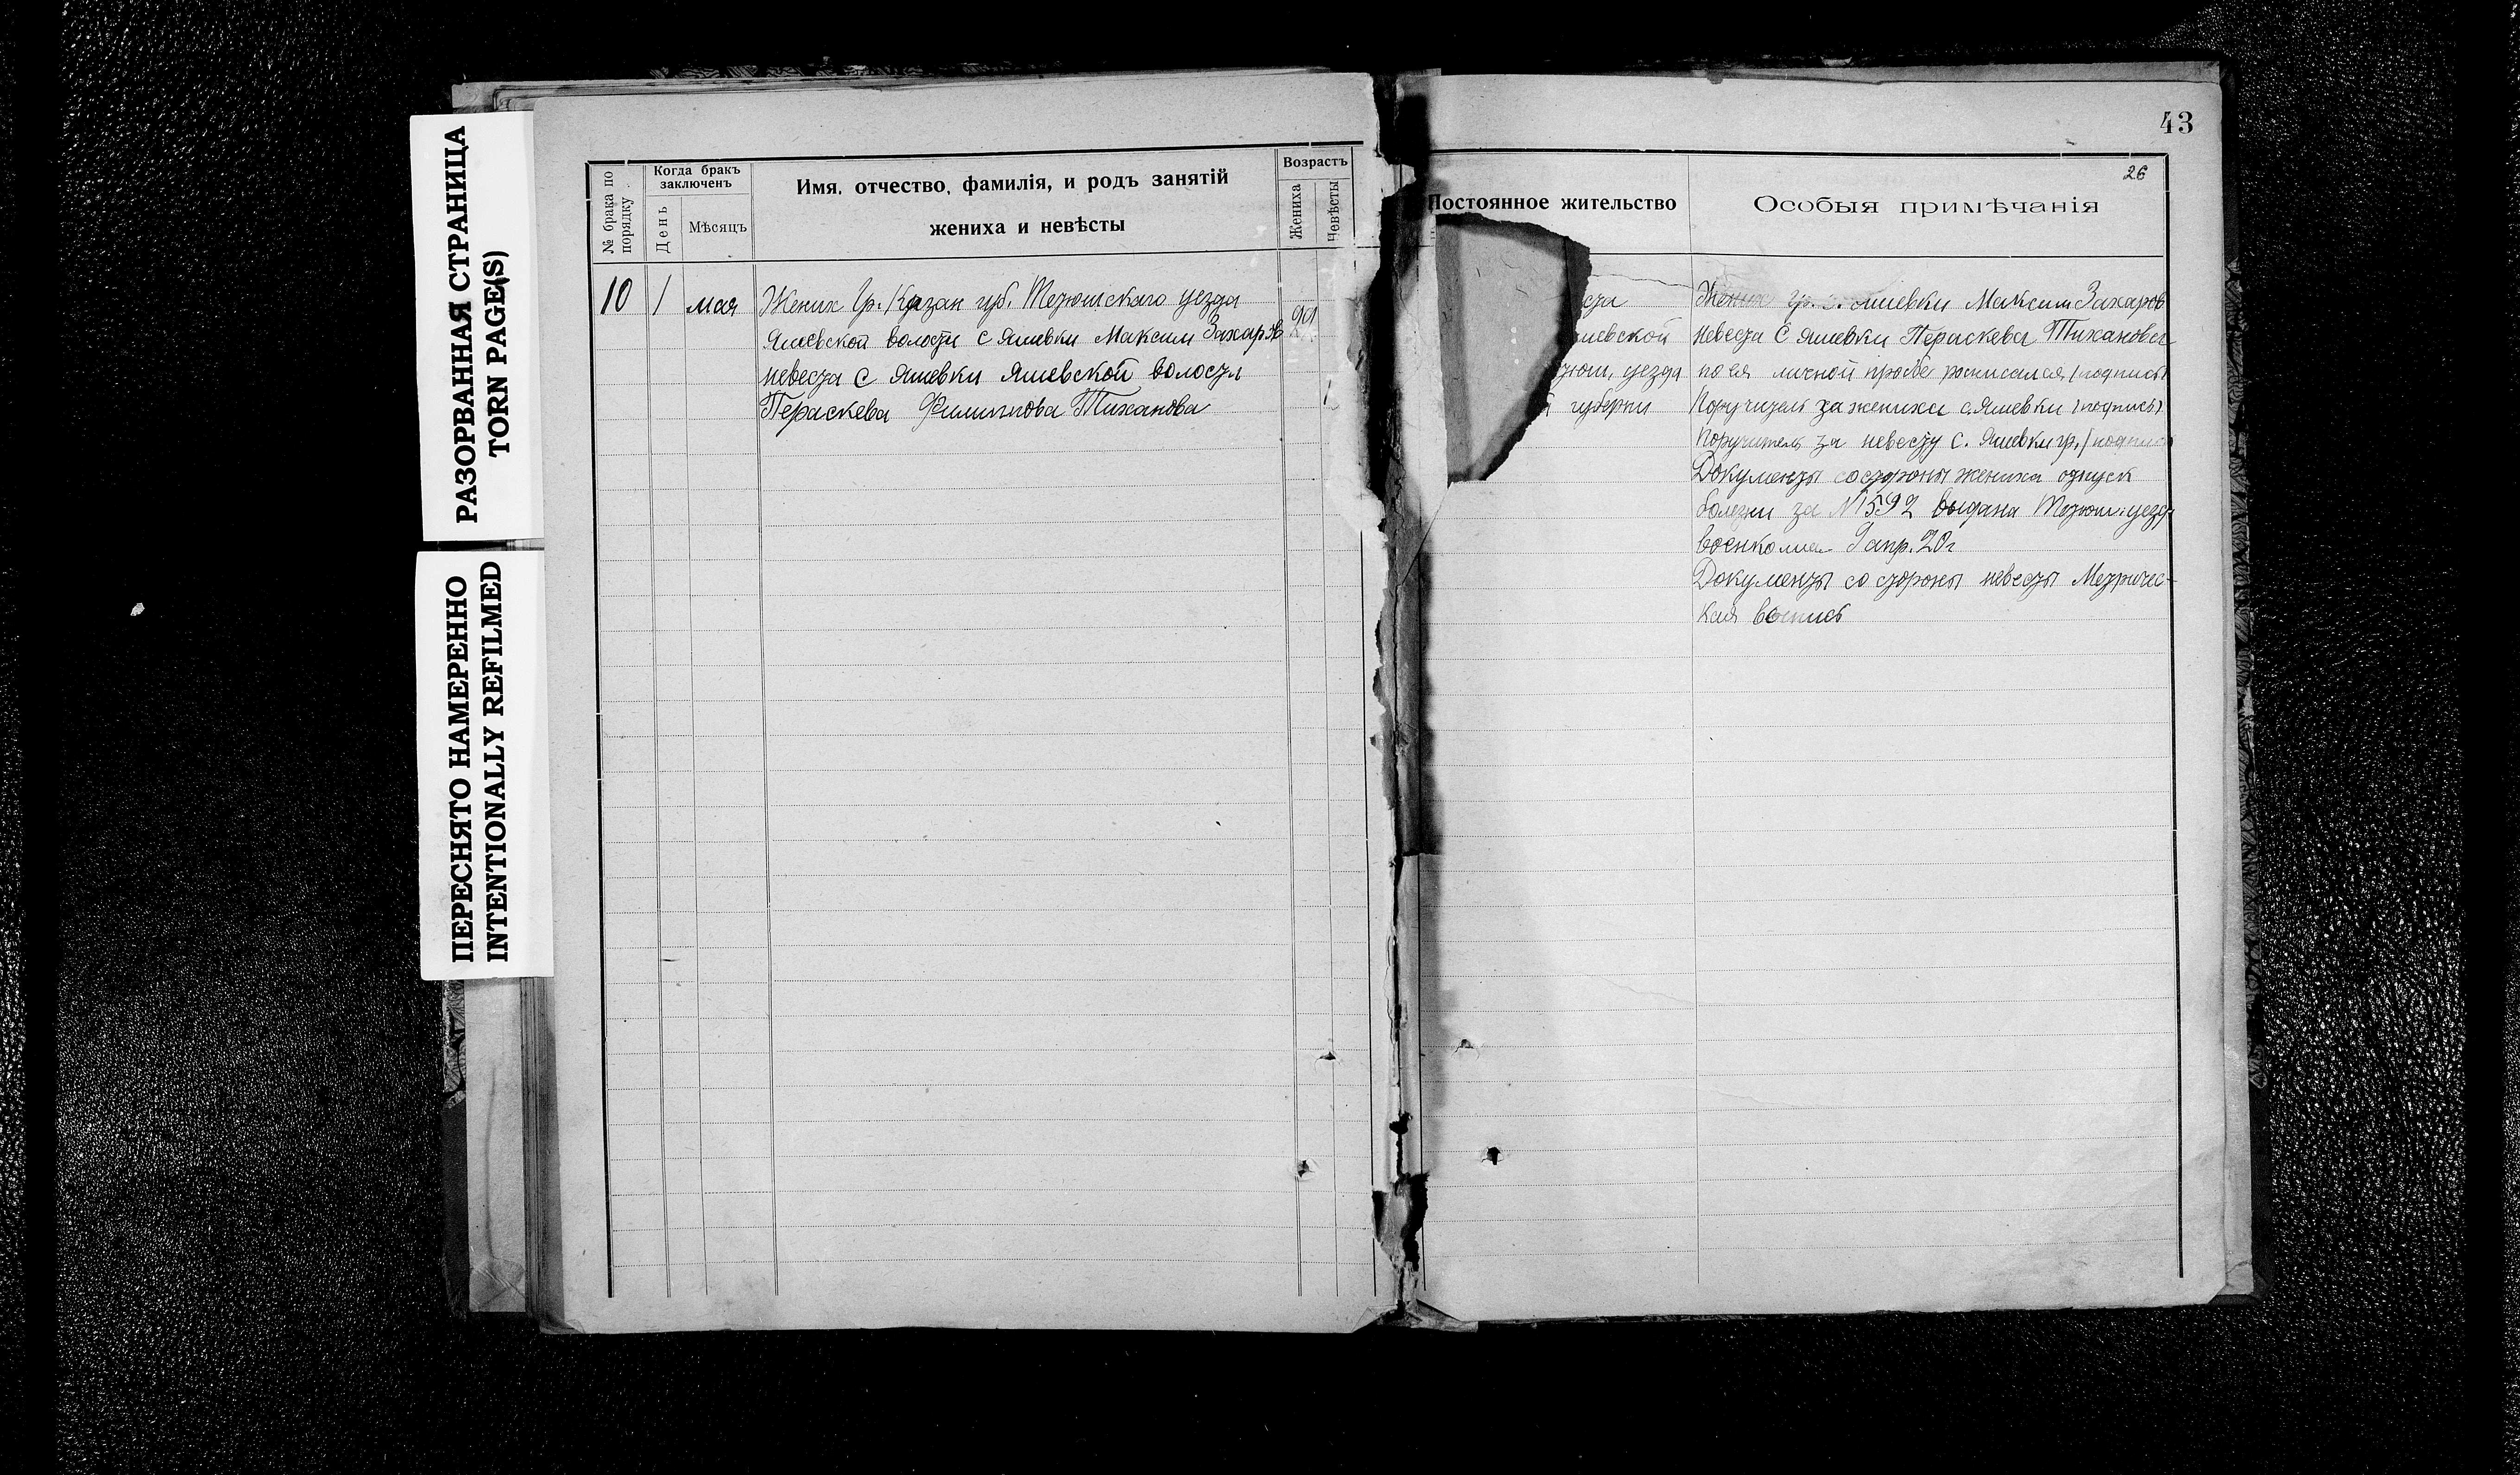 РАЗОРВАННАЯ СТРАНИЦА
TORN PAGE(S)
ПЕРЕСНЯТО НАМЕРЕННО
INTENTIONALLY REFILMED
№ брака по порядку
Когда бракъ заключенъ
День
Мѣсяцъ
Имя, отчество, фамилія, и родъ занятій
жениха и невѣсты
Возрастъ
Жениха
Невѣсты
10 1 мая Жених Гр. Казан губ. Тетюшскаго уезда
Яшевской волости с Яшевки Максим Захаров
невеста с Яшевки Яшевской волости
Пераскева Филиппова Тиханова
43
26
Постоянное жительство
Особыя примѣчанія
шевской
тюш, уезда
губерни
Жених гр. с. Яшевки Максим Захаров
Невеста с Яшевки Пераскева Тиханова
по ея личной прозбе росписался (подпись)
Поручитель за жениха с. Яшевки (подпись)
Поручитель за невесту с. Яшевки гр. (подпись
Документы со стороны жениха отпуск
болезни за № 1592 выдана Тетюш. уезд
военкома 9 апр. 20 г
Документы со стороны невесты Метричес-
кая выпись